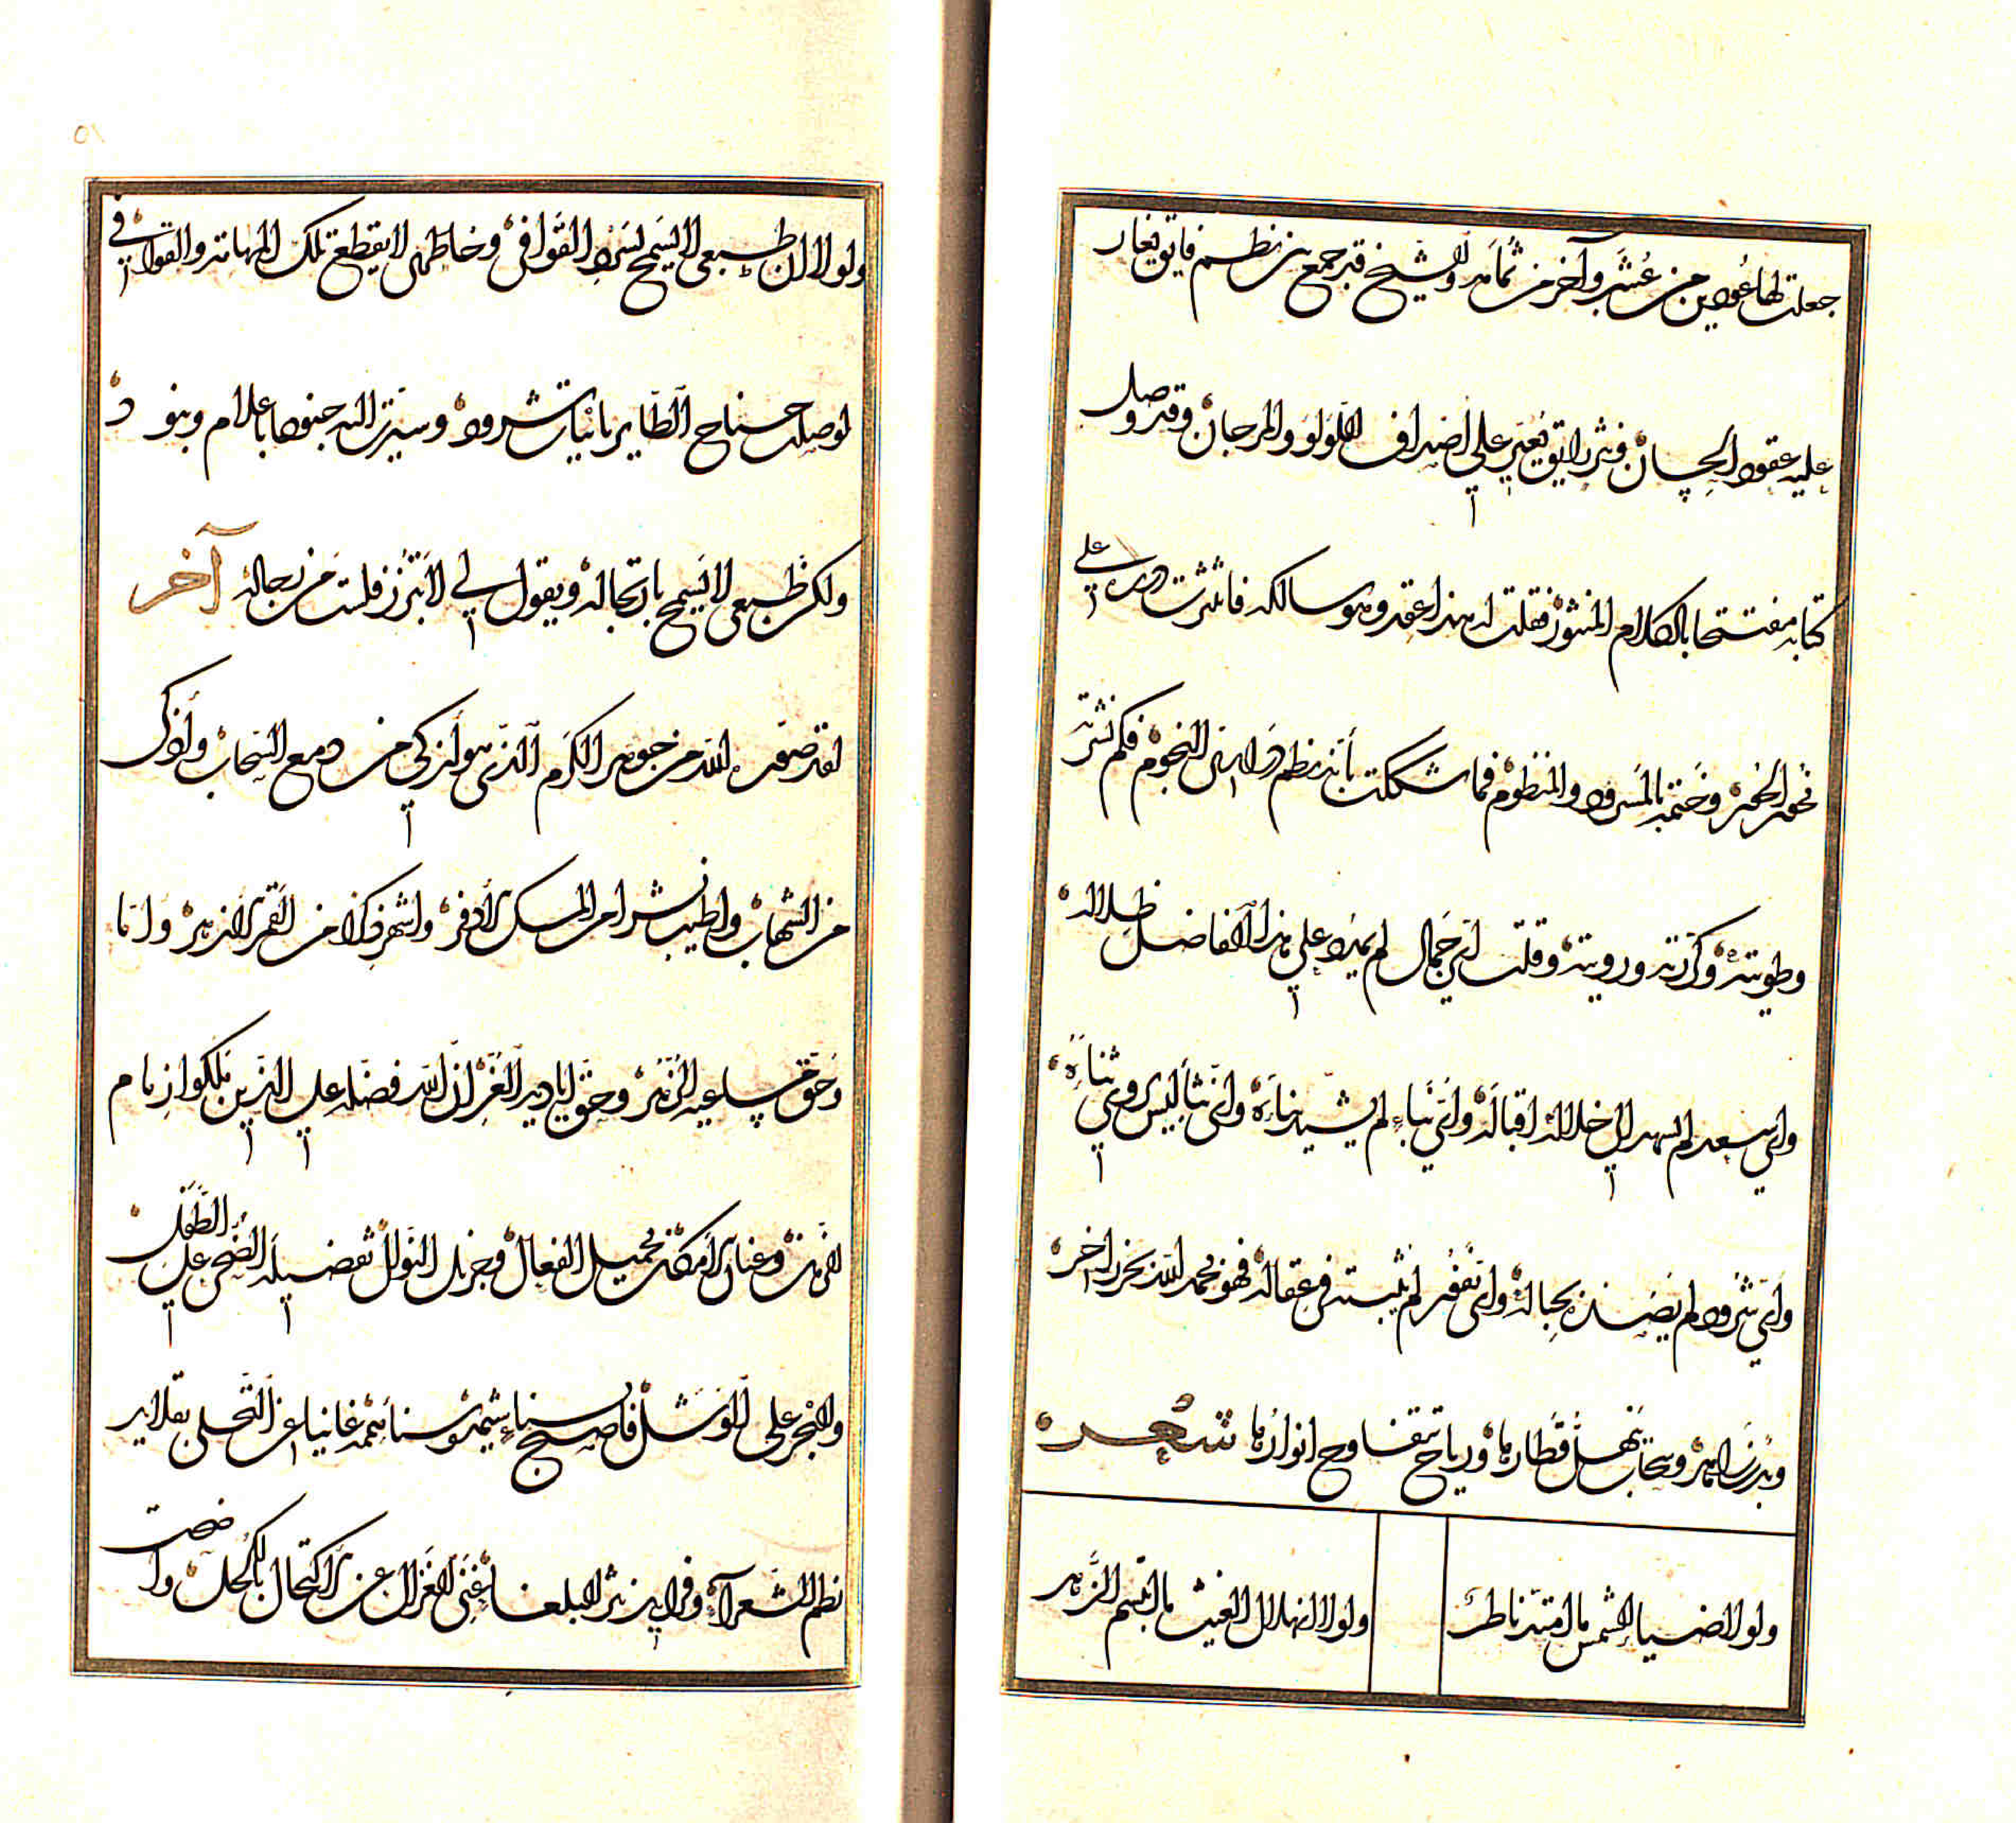 جعلت لها عودين من عشب وآخر من ثمامه والشيخ قد جمع بين نظم فايق يغار
عليه عقود الجمان ونثر رايق يعير على أصداف اللؤلؤ والمرجان وقد وصل
كتابه مفتتحا بالكلام المنثور فقلت له هذا عقد وهو سالكه فانثرت درره على
نحور الحور وختمه بالمسرود والمنظوم فما شككت بأنه نظم دراري النجوم فكم نشرته
وطويته وكررته ورويته وقلت أي جمال لم يمد على هذا الفاضل ظلاله
وأي سعد لم يهد إلى خلاله اقباله وأي بناء لم يشيد بناءه وأي نثا ليس روي ثناءه
وأي شرود لم يصد بحباله وأي نفور لم يثبت في عقاله فهو بحمد الله بحر زاخر
وبدر زاهر وسحاب ينهل قطارها ورياح تتفاوح انوارها شعر
ولولا ضياء الشمس ما امتد ناظر
ولولا انهلال الغيث ما ابتسم الزهر
٥١
ولولا ان طبعي لا يسمح بسرد القوافي وخاطري لا يقطع تلك المهامه والقوا في
لوصلت جناح الطاير بابيات شرود وسيرت اليه جنودا باعلام وبنود
ولكن طبعي لا يسمح بارتجاله ويقول لي لا تبرز فلست من رجاله آخر
لقد صفى الله من جوهر الكرم الذي هو أزكى من دمع السحاب وأذكى
من الشهاب واطيب نشرا من المسك الأذفر واشهر ذكرا من القمر الأزهر وانا
وحق مساعيه الزهر وحق اياديه الغر ان الله فضله على الذين ملكوا زمام
الزمن وعنان الأمكنة بجميل الفعال وجزيل النوال تفضيله الضحى على الطفل
والبحر على الوشل فاصبح بسناء شيمه وسنا همه غانيا عن التحلى بقلايد
نظم الشعرآء وفرايد نثر البلغاء غنى الغزال عن الاكتحال بالكحل وا